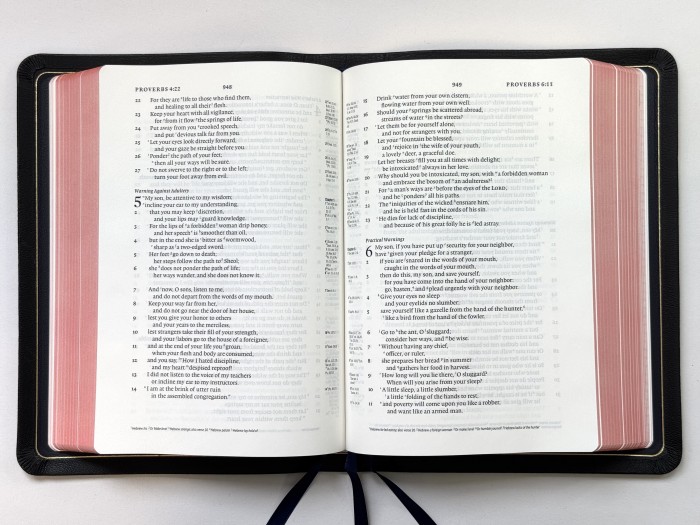 PROVERBS 4:22 948
22 For they are life to those who find them,
and healing to all their flesh.
23 Keep your heart with all vigilance,
for from it flow the springs of life.
24 Put away from you crooked speech,
and put devious talk far from you.
25 Let your eyes look directly forward,
and your gaze be straight before you.
26 Ponder the path of your feet;
then all your ways will be sure.
27 Do not swerve to the right or to the left;
turn your foot away from evil.
Warning Against Adultery
5 My son, be attentive to my wisdom;
incline your ear to my understanding,
2 that you may keep discretion,
and your lips may guard knowledge.
3 For the lips of a forbidden woman drip honey,
and her speech is smoother than oil,
4 but in the end she is bitter as wormwood,
sharp as a two-edged sword.
5 Her feet go down to death;
her steps follow the path to Sheol;
6 she does not ponder the path of life;
her ways wander, and she does not know it.
7 And now, O sons, listen to me,
and do not depart from the words of my mouth.
8 Keep your way far from her,
and do not go near the door of her house,
9 lest you give your honor to others
and your years to the merciless,
10 lest strangers take their fill of your strength,
and your labors go to the house of a foreigner,
11 and at the end of your life you groan,
when your flesh and body are consumed,
12 and you say, "How I hated discipline,
and my heart despised reproof!
13 I did not listen to the voice of my teachers
or incline my ear to my instructors.
14 I am at the brink of utter ruin
in the assembled congregation."
949 PROVERBS 6:11
15 Drink water from your own cistern,
flowing water from your own well.
16 Should your springs be scattered abroad,
streams of water in the streets?
17 Let them be for yourself alone,
and not for strangers with you.
18 Let your fountain be blessed,
and rejoice in the wife of your youth,
19 a lovely deer, a graceful doe.
Let her breasts fill you at all times with delight;
be intoxicated always in her love.
20 Why should you be intoxicated, my son, with a forbidden woman
and embrace the bosom of an adulteress?
21 For a man's ways are before the eyes of the LORD,
and he ponders all his paths.
22 The iniquities of the wicked ensnare him,
and he is held fast in the cords of his sin.
23 He dies for lack of discipline,
and because of his great folly he is led astray.
Practical Warnings
6 My son, if you have put up security for your neighbor,
have given your pledge for a stranger,
2 if you are snared in the words of your mouth,
caught in the words of your mouth,
3 then do this, my son, and save yourself,
for you have come into the hand of your neighbor:
go, hasten, and plead urgently with your neighbor.
4 Give your eyes no sleep
and your eyelids no slumber;
5 save yourself like a gazelle from the hand of the hunter,
like a bird from the hand of the fowler.
6 Go to the ant, O sluggard;
consider her ways, and be wise.
7 Without having any chief,
officer, or ruler,
8 she prepares her bread in summer
and gathers her food in harvest.
9 How long will you lie there, O sluggard?
When will you arise from your sleep?
10 A little sleep, a little slumber,
a little folding of the hands to rest,
11 and poverty will come upon you like a robber,
and want like an armed man.